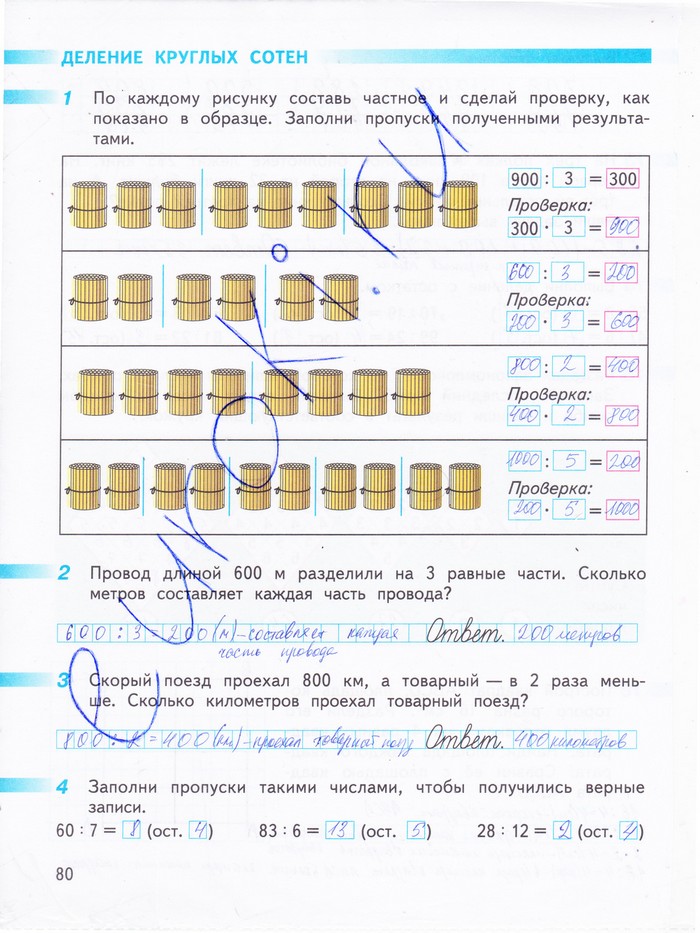 ДЕЛЕНИЕ КРУГЛЫХ СОТЕН
1 По каждому рисунку составь частное и сделай проверку, как
показано в образце. Заполни пропуски полученными результа-
тами.
900 : 3 = 300
Проверка:
300 · 3 = 900
600 : 3 = 200
Проверка:
200 · 3 = 600
800 : 2 = 400
Проверка:
400 · 2 = 800
1000 : 5 = 200
Проверка:
200 · 5 = 1000
2 Провод длиной 600 м разделили на 3 равные части. Сколько
метров составляет каждая часть провода?
600 : 3 = 200 (м) – составляет каждая Ответ. 200 метров
часть провода
3 Скорый поезд проехал 800 км, а товарный — в 2 раза мень-
ше. Сколько километров проехал товарный поезд?
800 : 2 = 400 (км) – проехал товарный поезд Ответ. 400 километров
4 Заполни пропуски такими числами, чтобы получились верные
записи.
60 : 7 = 8 (ост. 4) 83 : 6 = 13 (ост. 5) 28 : 12 = 2 (ост. 4)
80